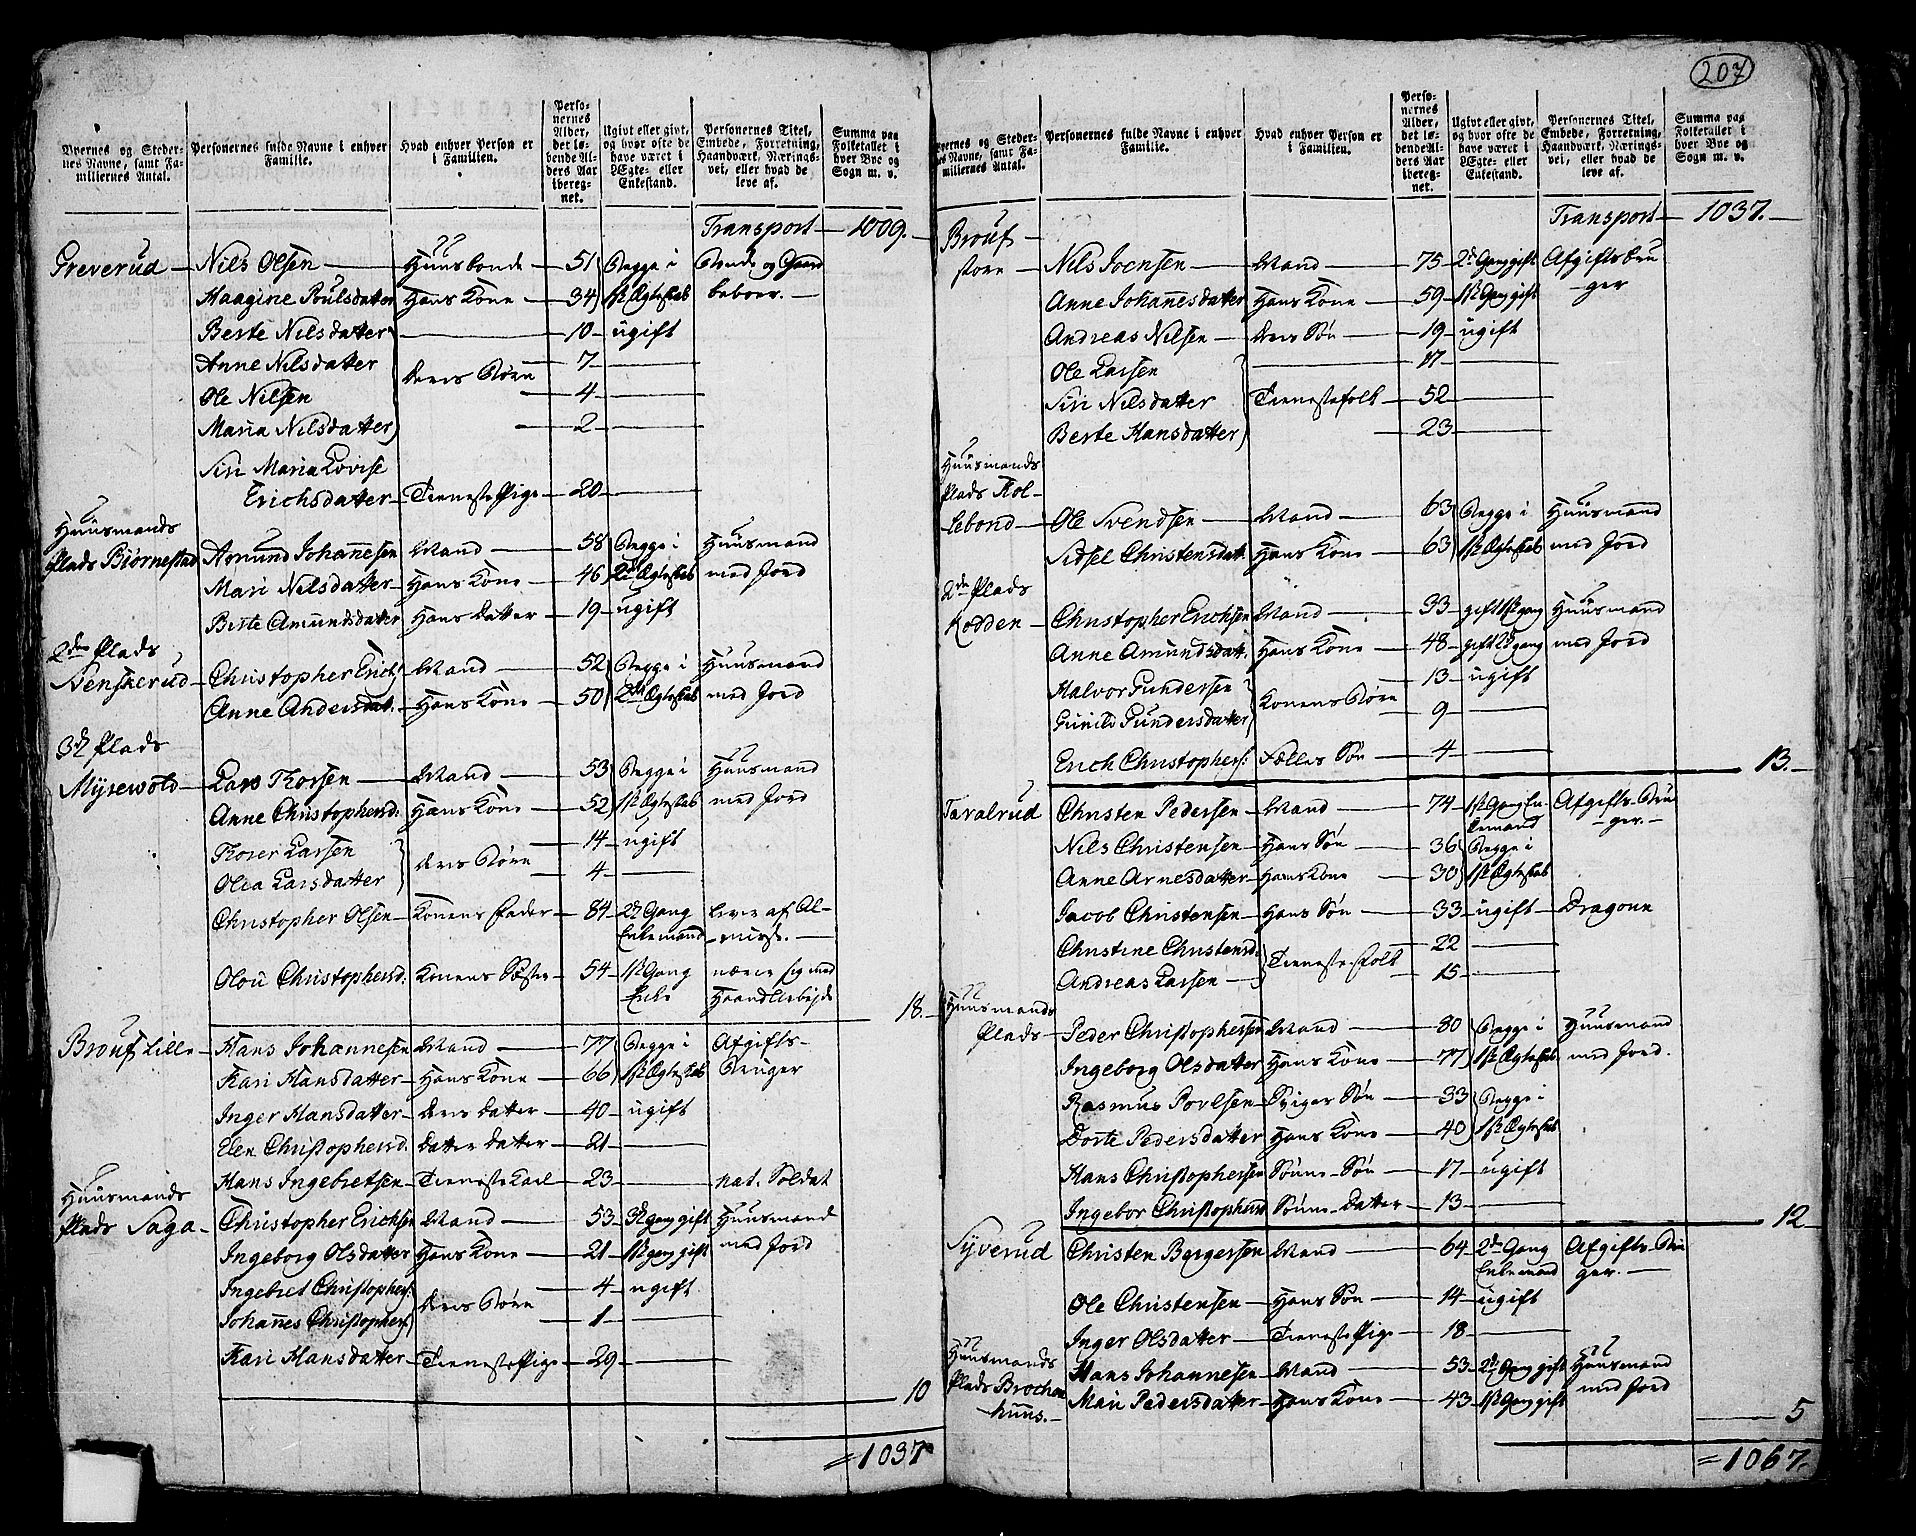 207
Byernes og Steder-
nes Navne, samt Fa-
miliernes Antal.
Personernes fulde Navne i enhver
Familie.
Hvad enhver Person er
i Familien.
Perso-
nernes
Alder,
det lø-
bende Al-
ders Aar
iberegn-
net.
Ugivt eller givt,
og hvor ofte de
have været i
Ægte- eller
Enkestand.
Personernes Titel,
Embede, Forretning,
Haandværk, Nærings-
vei, eller hvad de
leve af.
Summa paa
Folketallet i
hver Bye og
Sogn m. v.
Transport 1009.
Greverud Nils Olsen Huusbonde 51 Begge i Bonde og Gaard
Maagine Poulsdatter Hans Kone 34 1st Ægteskab beboer.
Berte Nilsdatter 10 ugift
Anne Nilsdatter 7
deres Børn
Ole Nilsen 4
Maria Nilsdatter 2
Siri Maria Lovise
Erichsdatter Tieneste Pige 20
Huusmands
Plads Biørnestad Amund Johannesen Mand 58 Begge i Huusmand
Mari Nilsdatter Hans Kone 46 2d Ægteskab med Jord
Berte Amundsdatter Hans Datter 19 ugift
2den Plads
Stenskerud Christopher Erichs. Mand 52 Begge i Huusmand
Anne Andersdat. Hans Kone 50 2det Ægteskab med Jord
3de Plads
Myrewold Lars Thorsen Mand 53 Begge i Huusmand
Anne Christophersd. Hans Kone 52 1st Ægteskab med Jord
Thorer Larsen 14 ugift
deres Børn
Olea Larsdatter 4
Christopher Olsen Konens Fader 84 2de Gang lever af Al-
Enkemand misse.
Olou Christophersd. Konens Søster 54 1st Gang nærer sig med
Enke Haandarbejde
18.
Brouf Lille Hans Johannesen Mand 77 Begge i Afgifts-
Kari Hansdatter Hans Kone 66 1st Ægteskab Bruger
Inger Hansdatter deres datter 40 ugift
Elen Christophersd. datter datter 21
Hans Ingebretsen Tieneste Karl 23 nat. Soldat
Huusmands
Plads Saga Christopher Erichsen Mand 53 3de gang gift Huusmand
Ingeborg Olsdatter Hans Kone 21 1st gang gift med Jord
Ingebret Christophers. 4 ugift
deres Børn
Johannes Christophers. 1
Kari Hansdatter Tieneste Pige 29
10
=1037
Byernes og Steder-
nes Navne, samt Fa-
miliernes Antal.
Personernes fulde Navne i enhver
Familie.
Hvad enhver Person er
i Familien.
Perso-
nernes
Alder,
det lø-
bende Al-
ders Aar
iberegn-
net.
Ugivt eller givt,
og hvor ofte de
have været i
Ægte- eller
Enkestand.
Personernes Titel,
Embede, Forretning,
Haandværk, Nærings-
vei, eller hvad de
leve af.
Summa paa
Folketallet i
hver Bye og
Sogn m. v.
Transport 1037.
Brouf
store Nils Joensen Mand 75 2de Gang gift Afgifts bru
Anne Johannesdatter Hans Kone 59 1st Gang gift ger
Andreas Nilsen deres Søn 19 ugift
Ole Larsen 17
Siri Nilsdatter Tienestefolk 52
Berte Hansdatter 23
Huusmands
Plads Kol-
lebond Ole Svendsen Mand 63 Begge i Huusmand
Sidsel Christensdatt. Hans Kone 63 1st Ægteskab med Jord
2den Plads
Kodden Christopher Erichsen Mand 33 gift 1st gang Huusmand
Anne Amundsdatt. Hans Kone 48 gift 2d gang med Jord
Halvor Gundersen 13 ugift
Konens Børn
Gunild Gundersdatter 9
Erich Christophers. Fælles Søn 4
13.
Taralrud Christen Pedersen Mand 74 1st Gang En- Afgifts-Bru
kemand ger.
Nils Christensen Hans Søn 36 Begge i
Anne Arnesdatter Hans Kone 30 1st Ægteskab
Jacob Christensen Hans Søn 33 ugift Dragoun
Christine Christensd. 22
Tieneste folk
Andreas Larsen 15
Huusmands
Plads Peder Christophersen Mand 80 Begge i Huusmand
Ingeborg Olsdatter Hans Kone 77 1st Ægteskab med Jord.
Rasmus Povelsen Sviger Søn 33 Begge i
Dorte Pedersdatter Hans Kone 40 1st Ægteskab
Hans Christophersen Sønne Søn 17 ugift
Ingebor Christophersd Sønne Datter 13
12
Syverud Christen Børgersen Mand 64 2den Gang Afgifts-Bru
Enkemand ger.
Ole Christensen Hans Søn 14 ugift
Inger Olsdatter Tieneste Pige 18
Huusmands
Plads Brochen Hans Johannesen Mand 53 2de Gang gift Huusmand
huus. Mari Pedersdatter Hans Kone 43 1st Gang gift med Jord
5
=1067.